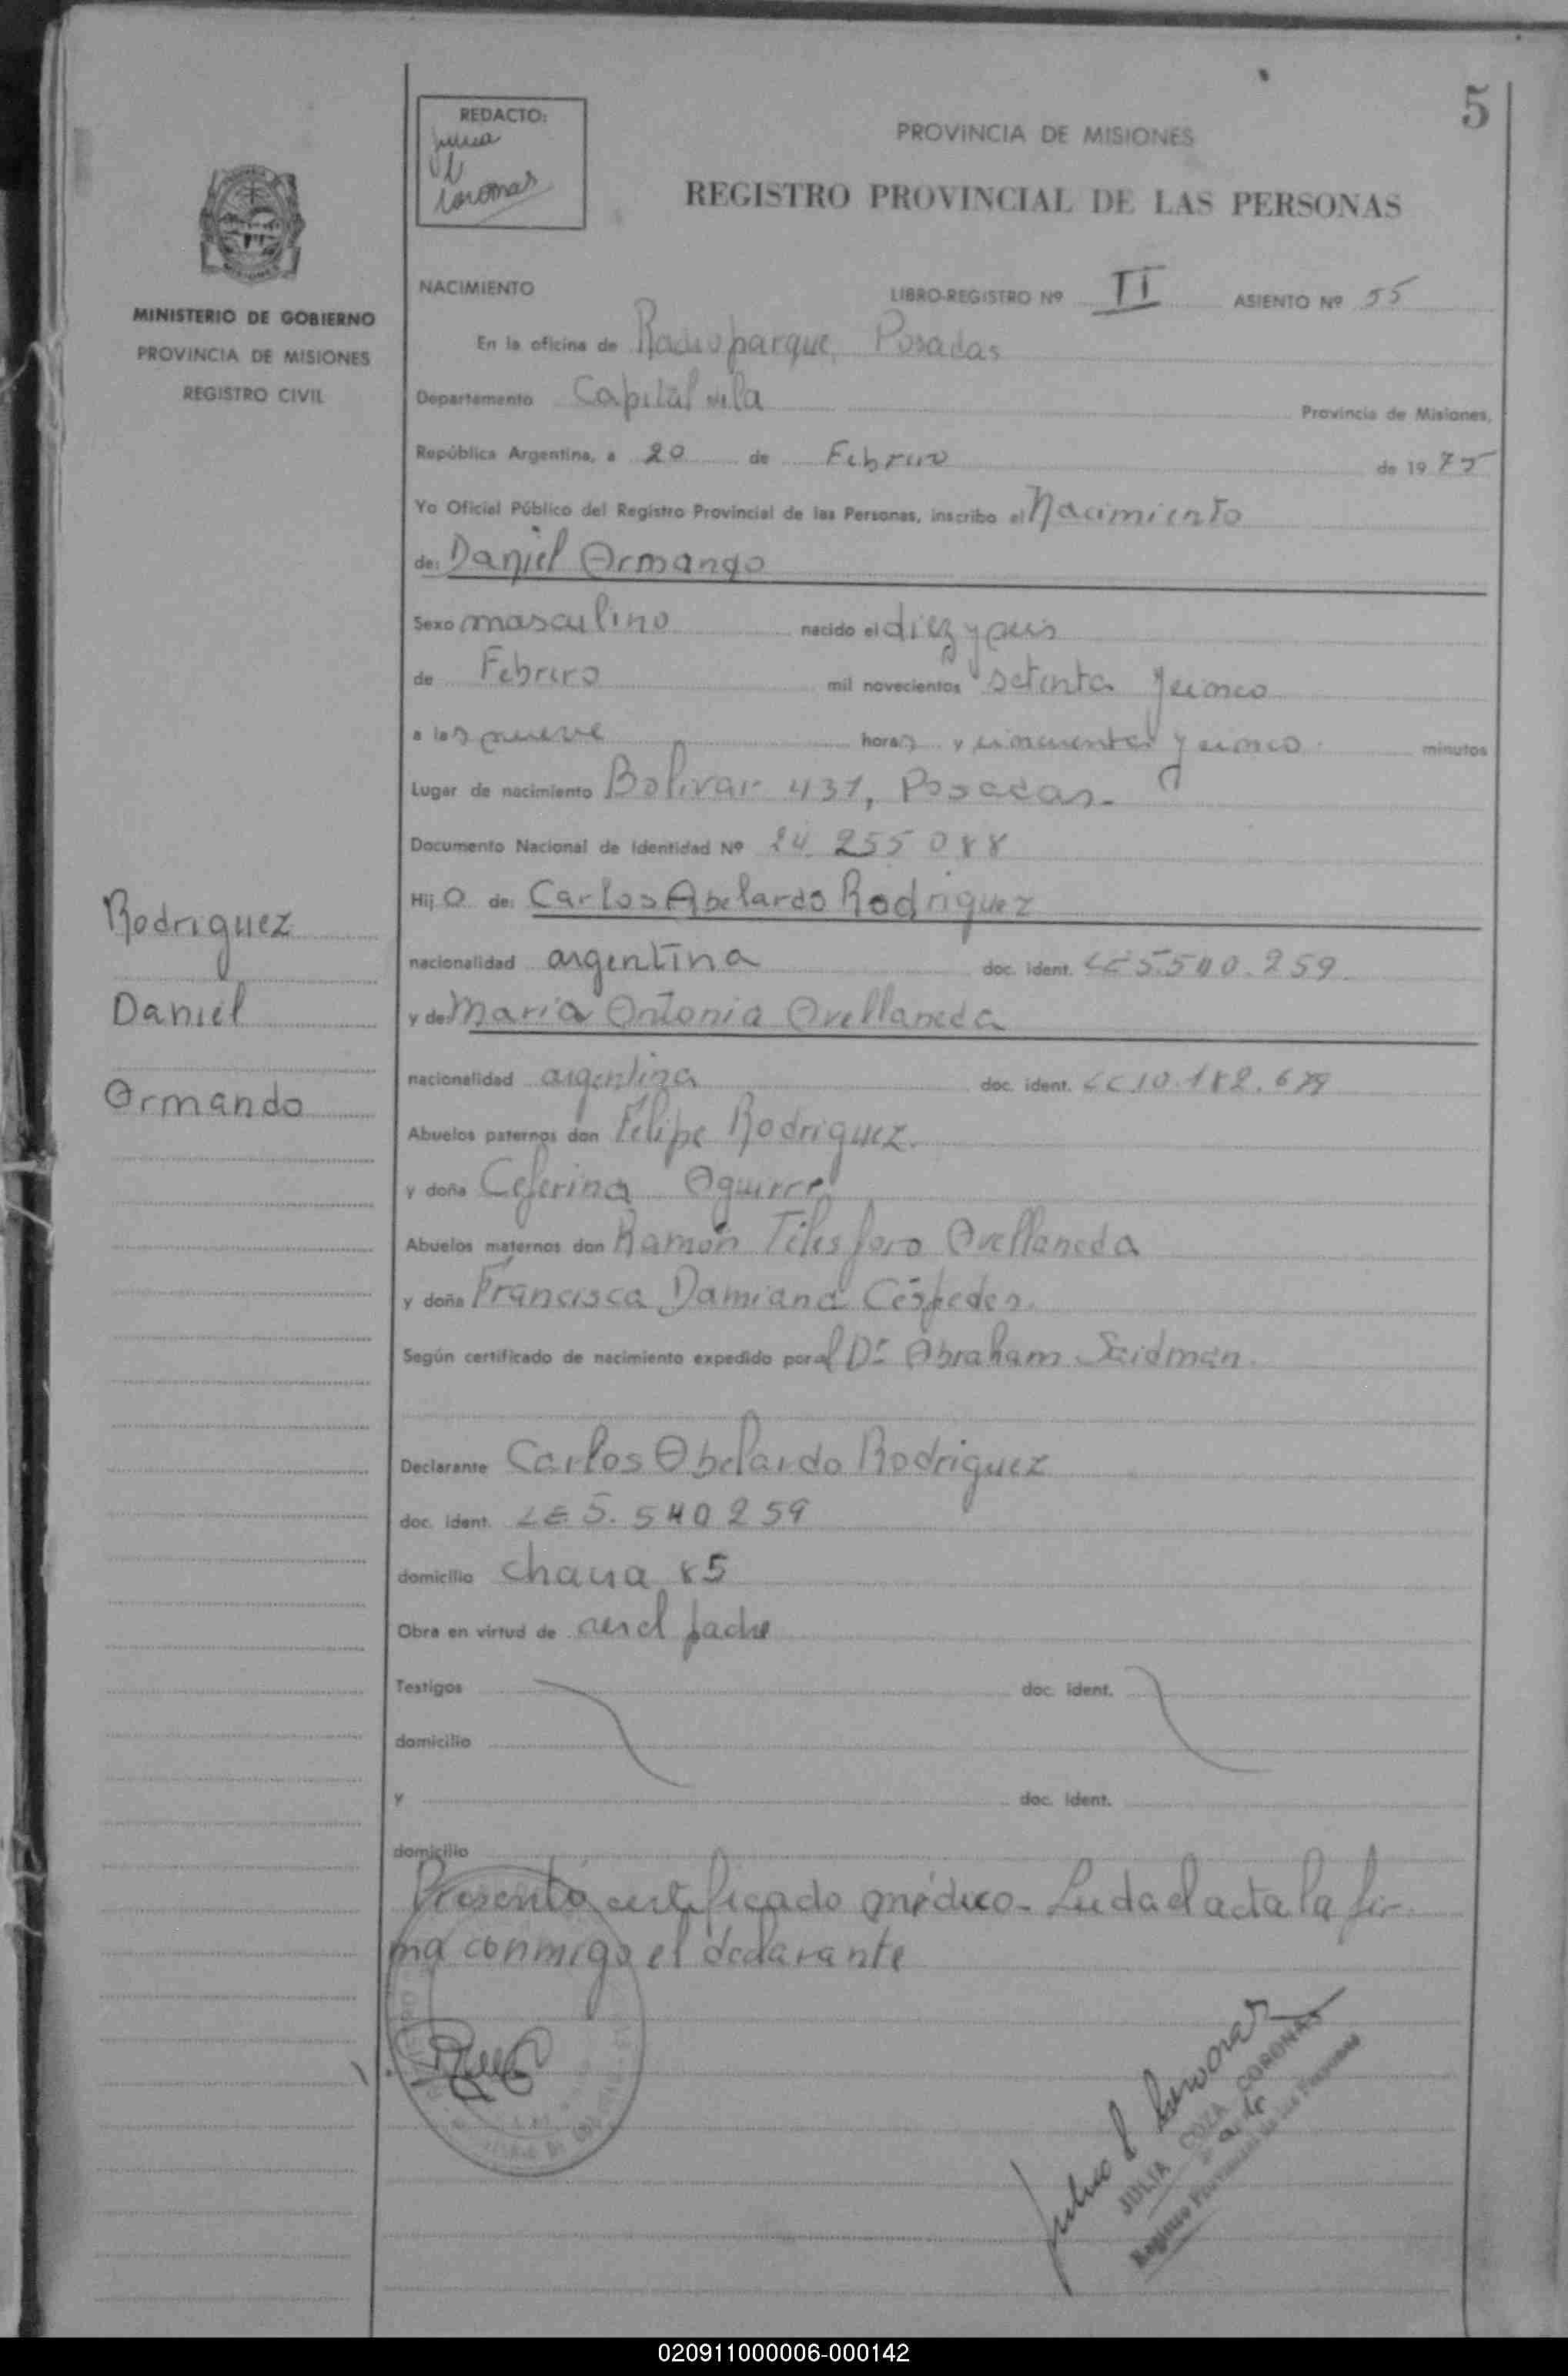 5
REDACTO:
Coronas
PROVINCIA DE MISIONES
REGISTRO PROVINCIAL DE LAS PERSONAS
MINISTERIO DE GOBIERNO
PROVINCIA DE MISIONES
REGISTRO CIVIL
NACIMIENTO LIBRO-REGISTRO Nº II ASIENTO Nº 55
En la oficina de Radioparque, Posadas
Departamento Capital de la Provincia de Misiones,
República Argentina, a 20 de Febrero de 1975
Yo Oficial Público del Registro Provincial de las Personas, inscribo el Nacimiento
de: Daniel Ormango
Sexo masculino nacido el diez y seis
de Febrero mil novecientos setenta y cinco
a las nueve horas y cincuenta y cinco minutos
Lugar de nacimiento Bolivar 431, Posadas.
Documento Nacional de Identidad Nº 24.255 088
Hijo de: Carlos Abelardo Rodriguez
nacionalidad argentina doc. ident. LE 5.540.259
y de: Maria Antonia Avellaneda
nacionalidad argentina doc. ident. LC 10.182.679
Abuelos paternos don Felipe Rodriguez.
y doña Ceferina Aguirre
Abuelos maternos don Ramón Telesforo Avellaneda
y doña Francisca Damiana Céspedes.
Según certificado de nacimiento expedido por el Dr Abraham Saidman.
Declarante Carlos Abelardo Rodriguez
doc. ident. LE 5.540259
domicilio 85
Obra en virtud de ser el padre
Testigos doc. ident.
domicilio
y doc. ident.
domicilio
Presentó certificado médico. Leida el acta la fir-
ma conmigo el declarante
Rodriguez
Daniel
Armando
JULIA COZA CORONAS
Registro Provincial de las Personas
020911000006-000142